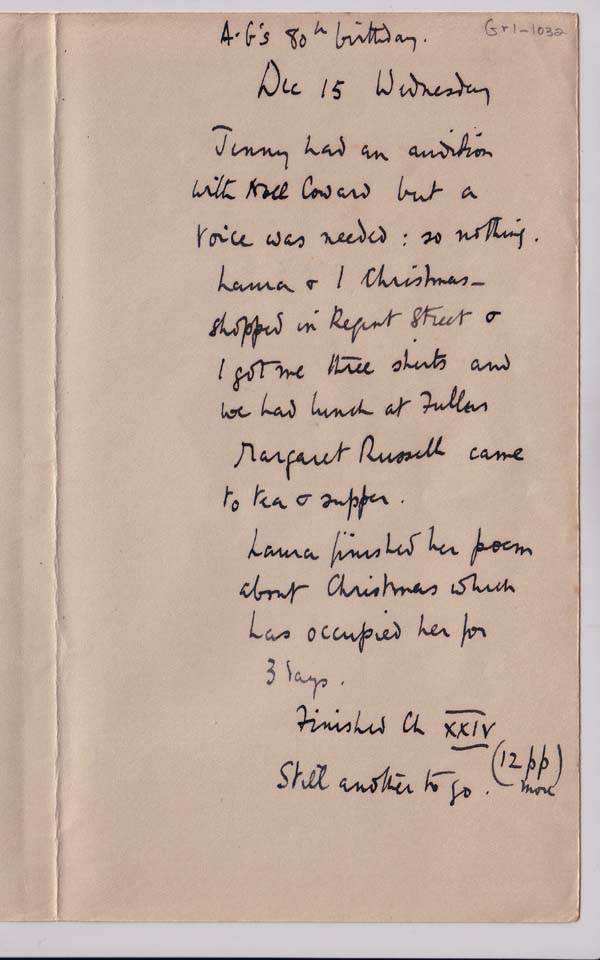 A.G's 80th birthday.
Gr1-1032
Dec 15 Wednesday
Jenny had an audition
with Noel Coward but a
voice was needed: so nothing.
Laura & I Christmas-
shopped in Regent Street &
I got me three shirts and
we had lunch at Fullers
Margaret Russell came
to tea & supper.
Laura finished her poem
about Christmas which
has occupied her for
3 days.
Finished Ch XXIV
(12 pp more)
Still another to go.